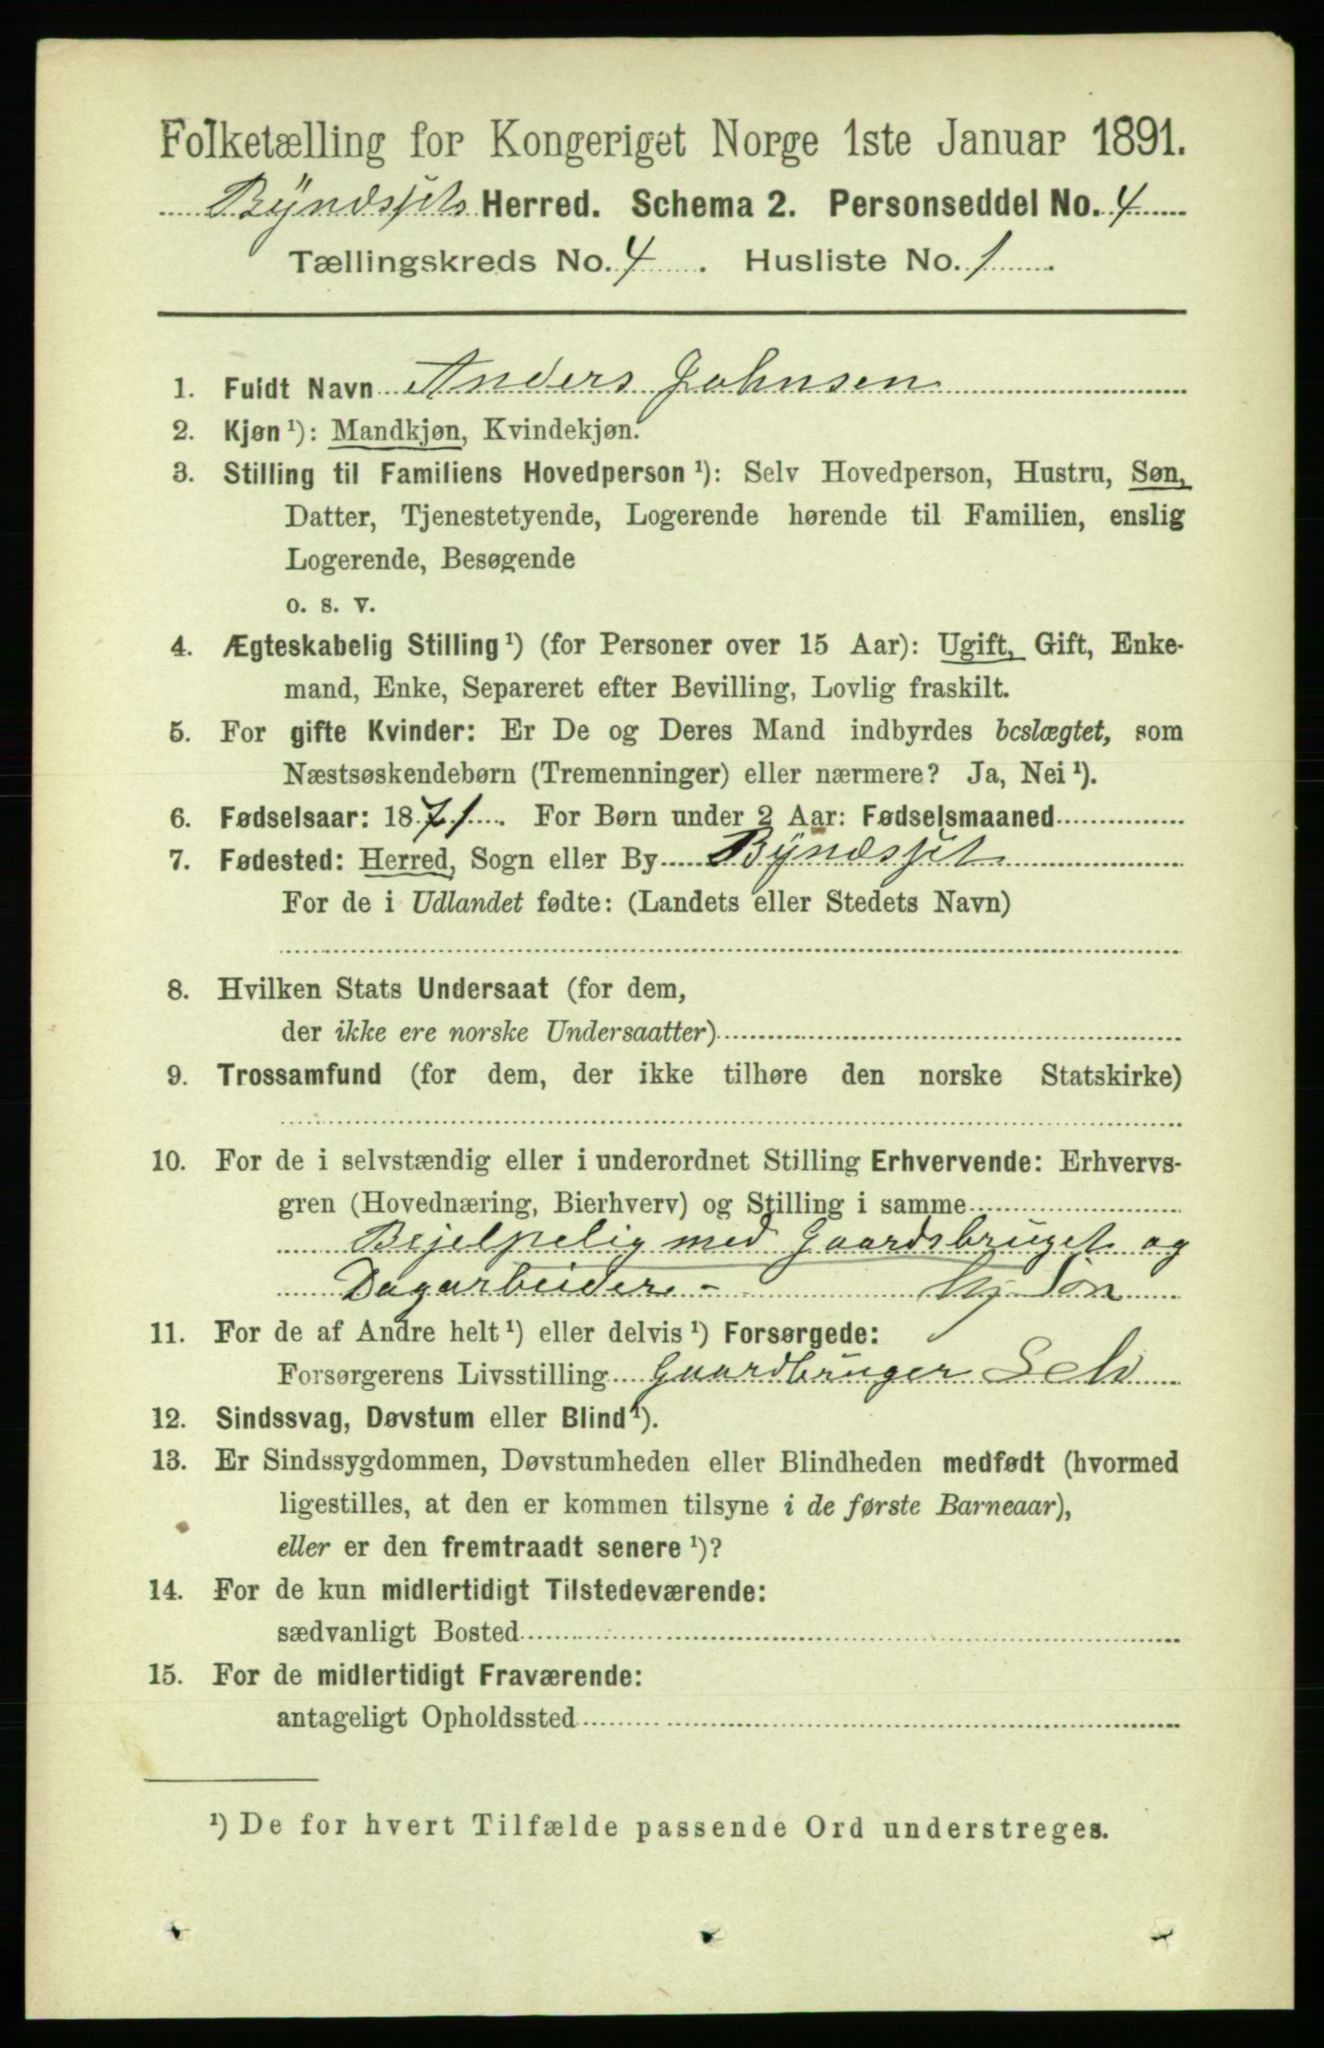 Folketælling for Kongeriget Norge 1ste Januar 1891.
Byndssjets Herred. Schema 2. Personseddel No. 4
Tællingskreds No. 4. Husliste No. 1
1. Fuldt Navn Anders Johnsen
2. Kjøn ¹): Mandkjøn, Kvindekjøn.
3. Stilling til Familiens Hovedperson ¹): Selv Hovedperson, Hustru, Søn,
Datter, Tjenestetyende, Logerende hørende til Familien, enslig
Logerende, Besøgende
o. s. v.
4. Ægteskabelig Stilling ¹) (for Personer over 15 Aar): Ugift, Gift, Enke-
mand, Enke, Separeret efter Bevilling, Lovlig fraskilt.
5. For gifte Kvinder: Er De og Deres Mand indbyrdes beslægtet, som
Næstsøskendebørn (Tremenninger) eller nærmere? Ja, Nei ¹).
6. Fødselsaar: 1871. For Børn under 2 Aar: Fødselsmaaned
7. Fødested: Herred, Sogn eller By Byndssjet
For de i Udlandet fødte: (Landets eller Stedets Navn)
8. Hvilken Stats Undersaat (for dem,
der ikke ere norske Undersaatter)
9. Trossamfund (for dem, der ikke tilhøre den norske Statskirke)
10. For de i selvstændig eller i underordnet Stilling Erhvervende: Erhvervs-
gren (Hovednæring, Bierhverv) og Stilling i samme
Bejelpelig med Gaardsbruget og
Dagarbeider - Søn
11. For de af Andre helt ¹) eller delvis ¹) Forsørgede:
Forsørgerens Livsstilling Gaardbruger Selv
12. Sindssvag, Døvstum eller Blind ¹).
13. Er Sindssygdommen, Døvstumheden eller Blindheden medfødt (hvormed
ligestilles, at den er kommen tilsyne i de første Barneaar),
eller er den fremtraadt senere ¹)?
14. For de kun midlertidigt Tilstedeværende:
sædvanligt Bosted
15. For de midlertidigt Fraværende:
antageligt Opholdssted
¹) De for hvert Tilfælde passende Ord understreges.